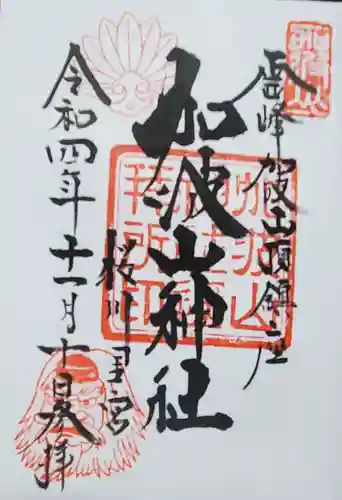 霊峰加波山頂鎮座
加波山神社
加波山神社拝所印
桜川里宮
令和四年十一月十日奉拝